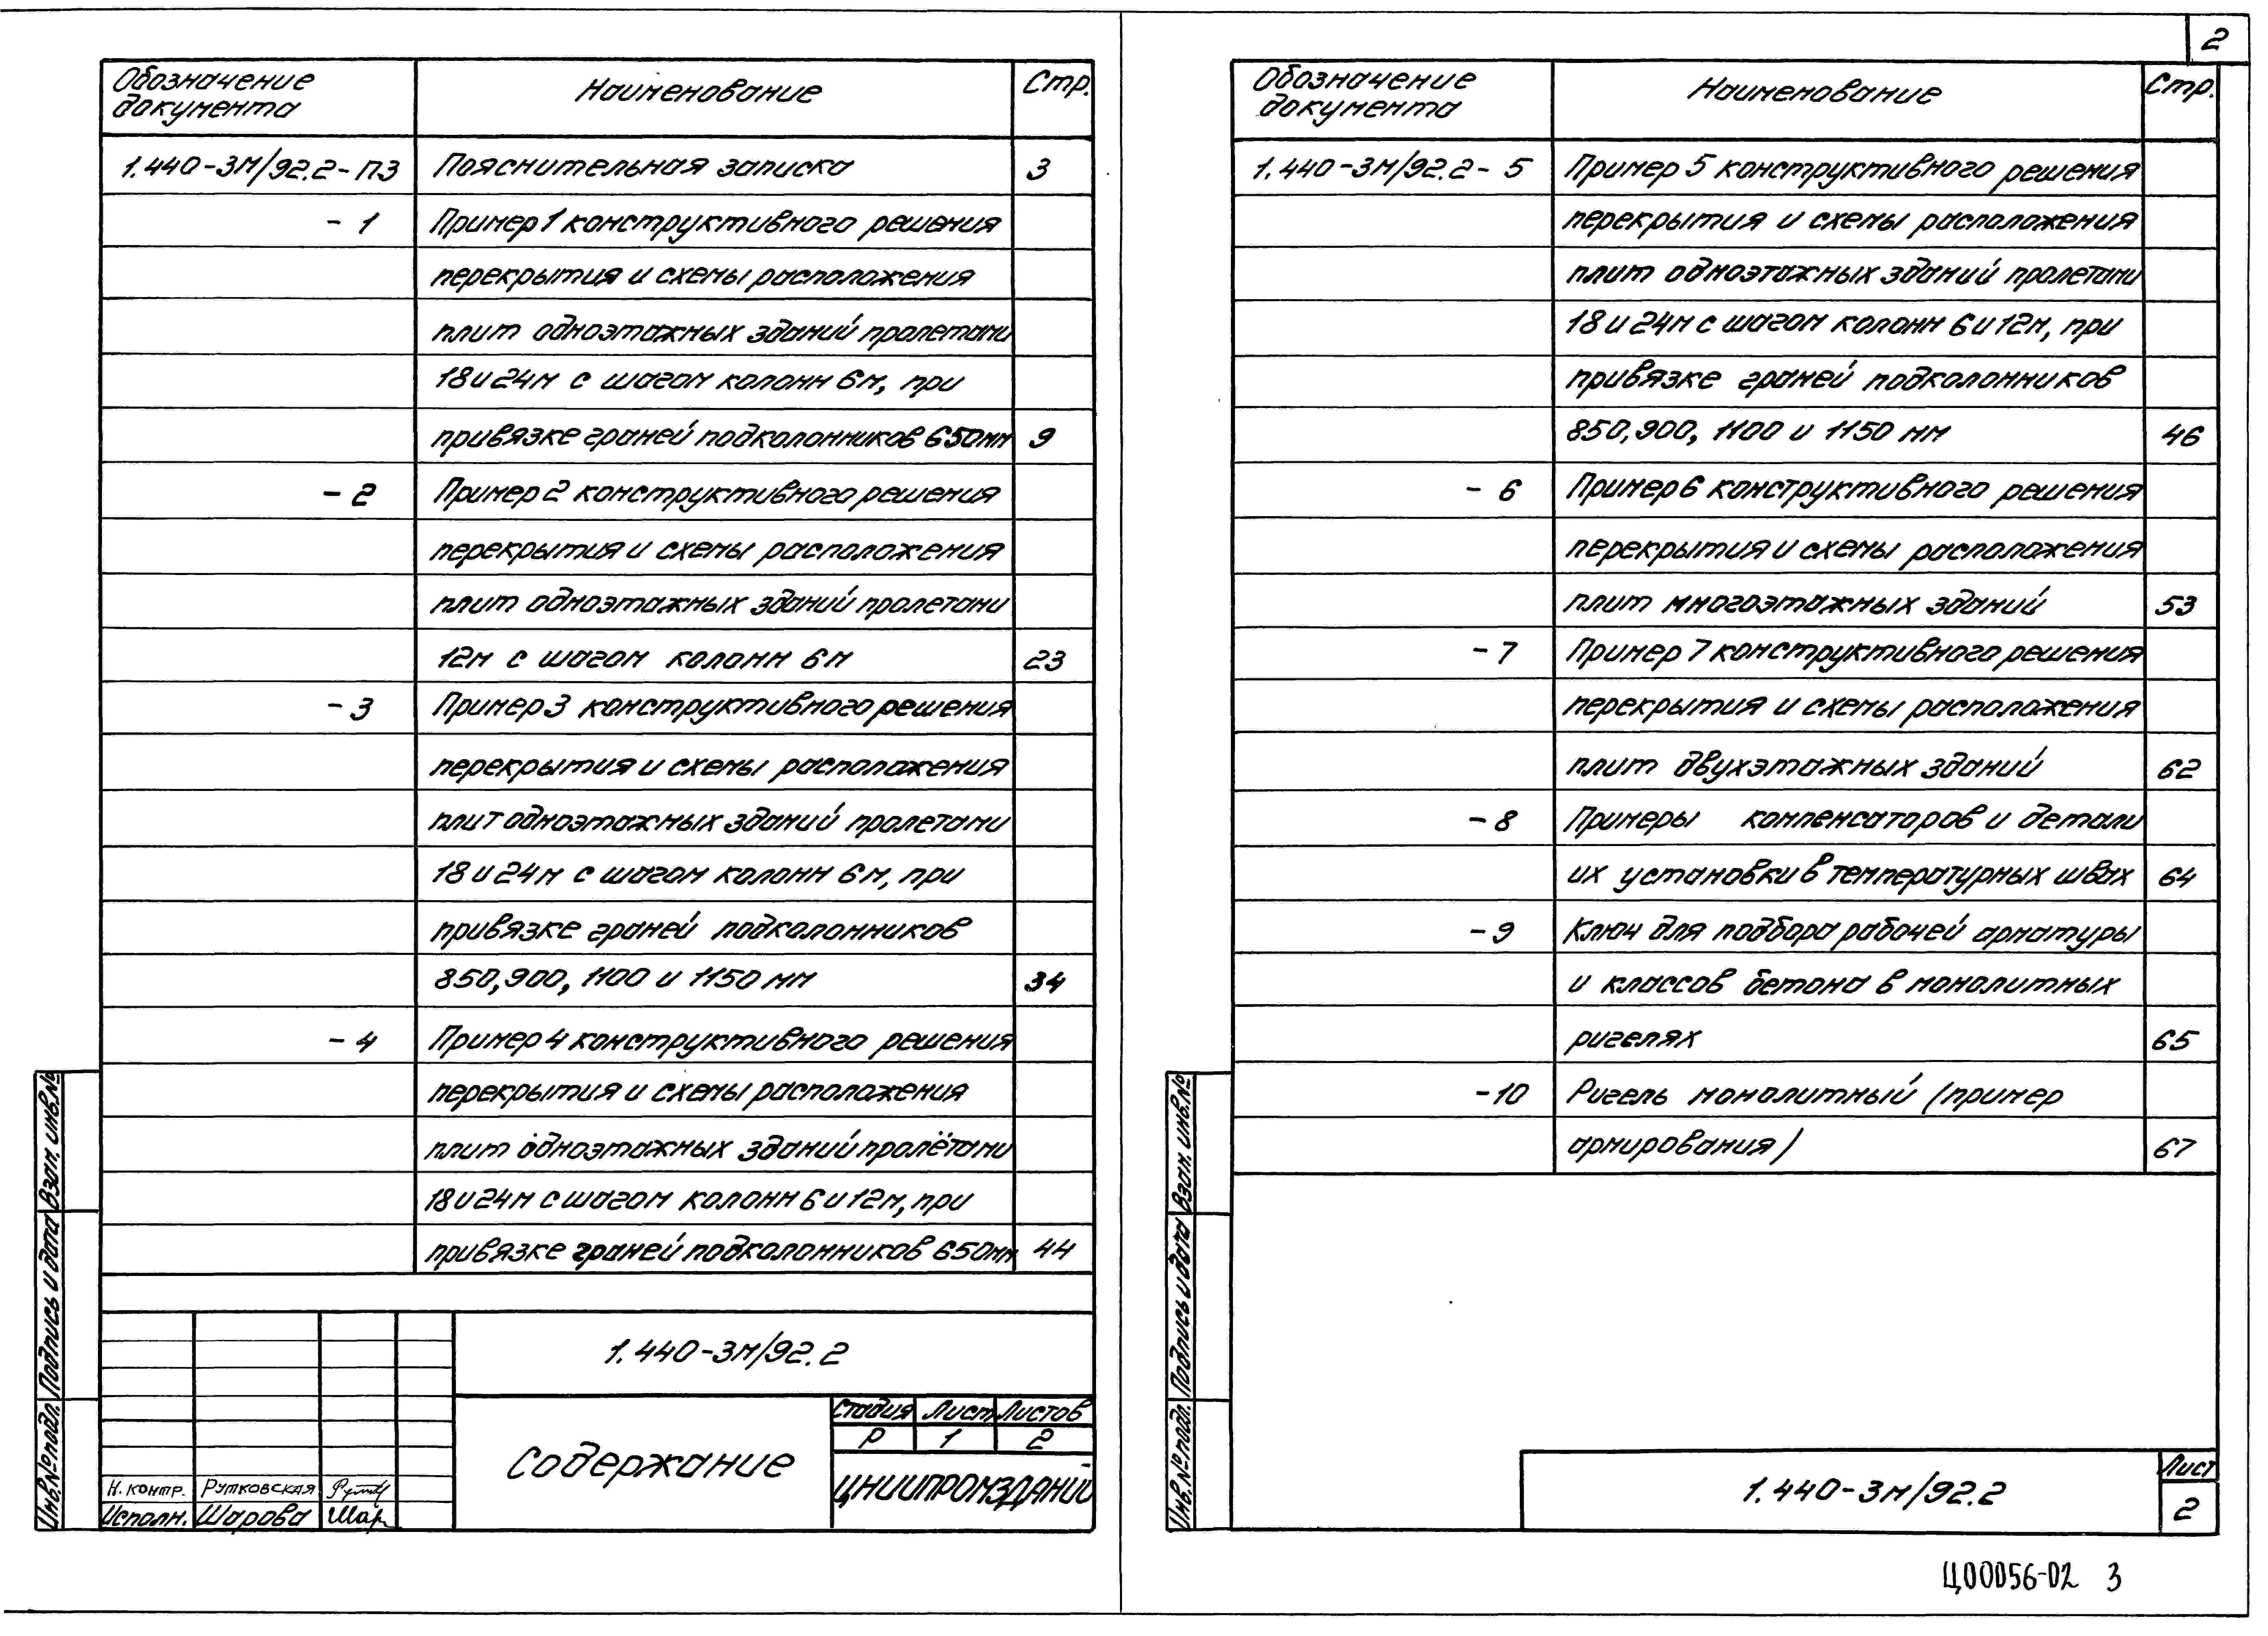 2
Обозначение документа Наименование Стр.
1.440-3м/92.2-ПЗ Пояснительная записка 3
-1 Пример 1 конструктивного решения
перекрытия и схемы расположения
плит одноэтажных зданий пролетами
18 и 24м с шагом колонн 6м, при
привязке граней подколонников 650мм 9
-2 Пример 2 конструктивного решения
перекрытия и схемы расположения
плит одноэтажных зданий пролетами
12м с шагом колонн 6м 23
-3 Пример 3 конструктивного решения
перекрытия и схемы расположения
плит одноэтажных зданий пролетами
18 и 24м с шагом колонн 6м, при
привязке граней подколонников
850,900, 1100 и 1150 мм 34
-4 Пример 4 конструктивного решения
перекрытия и схемы расположения
плит одноэтажных зданий пролётами
18 и 24м с шагом колонн 6 и 12м, при
привязке граней подколонников 650мм 44
1.440-3м/92.2
Содержание
Стадия Лист Листов
Р 1 2
ЦНИИПРОМЗДАНИЙ
Н. контр. Рутковская
Исполн. Шарова Шар
Инв.№подл. Подпись и дата Взам. инв.№
Обозначение документа Наименование Стр.
1.440-3м/92.2-5 Пример 5 конструктивного решения
перекрытия и схемы расположения
плит одноэтажных зданий пролетами
18 и 24м с шагом колонн 6 и 12м, при
привязке граней подколонников
850,900, 1100 и 1150 мм 46
-6 Пример 6 конструктивного решения
перекрытия и схемы расположения
плит многоэтажных зданий 53
-7 Пример 7 конструктивного решения
перекрытия и схемы расположения
плит двухэтажных зданий 62
-8 Примеры компенсаторов и детали
их установки в температурных швах 64
-9 Ключ для подбора рабочей арматуры
и классов бетона в монолитных
ригелях 65
-10 Ригель монолитный (пример
армирования) 67
Инв.№подл. Подпись и дата Взам. инв.№
1.440-3м/92.2
Лист
2
Ц00056-02 3